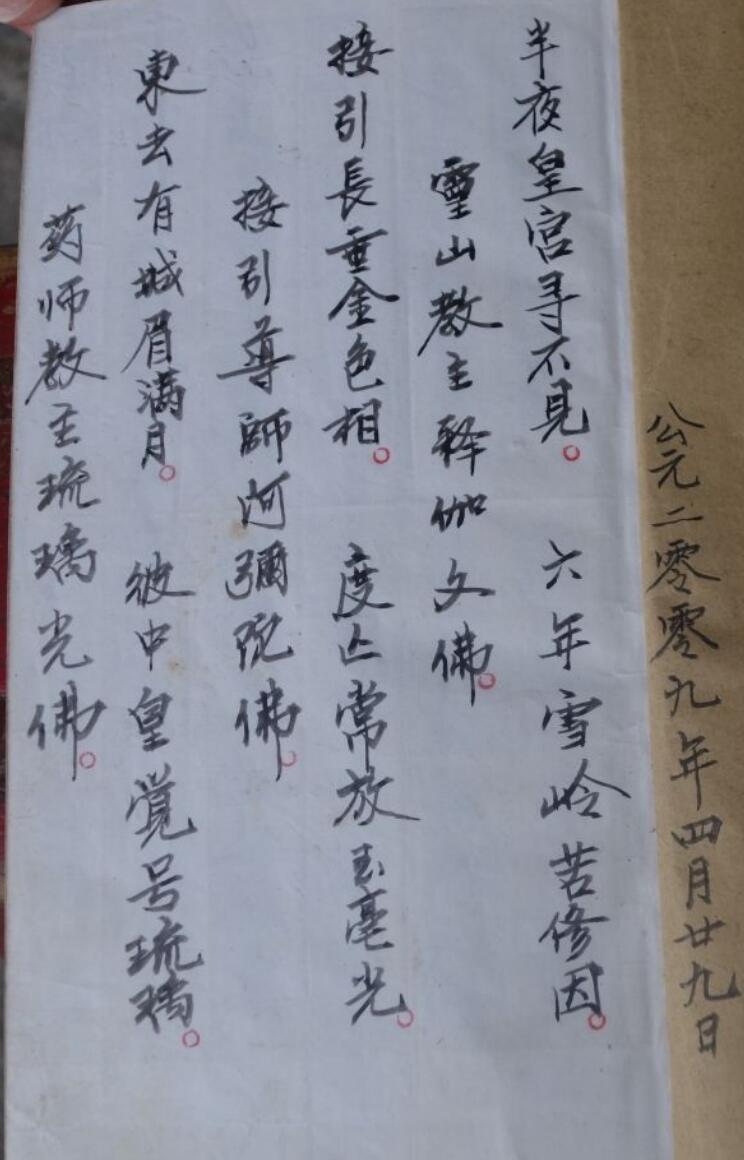 公元二零零九年四月廿九日
半夜皇宫寻不見。 六年雪岭苦修因。
靈山教主释伽文佛。
接引長垂金色相。 度亡常放玉毫光。
接引導師阿彌陀佛。
東去有城眉满月。 彼中皇觉号琉璃。
药师教主琉璃光佛。